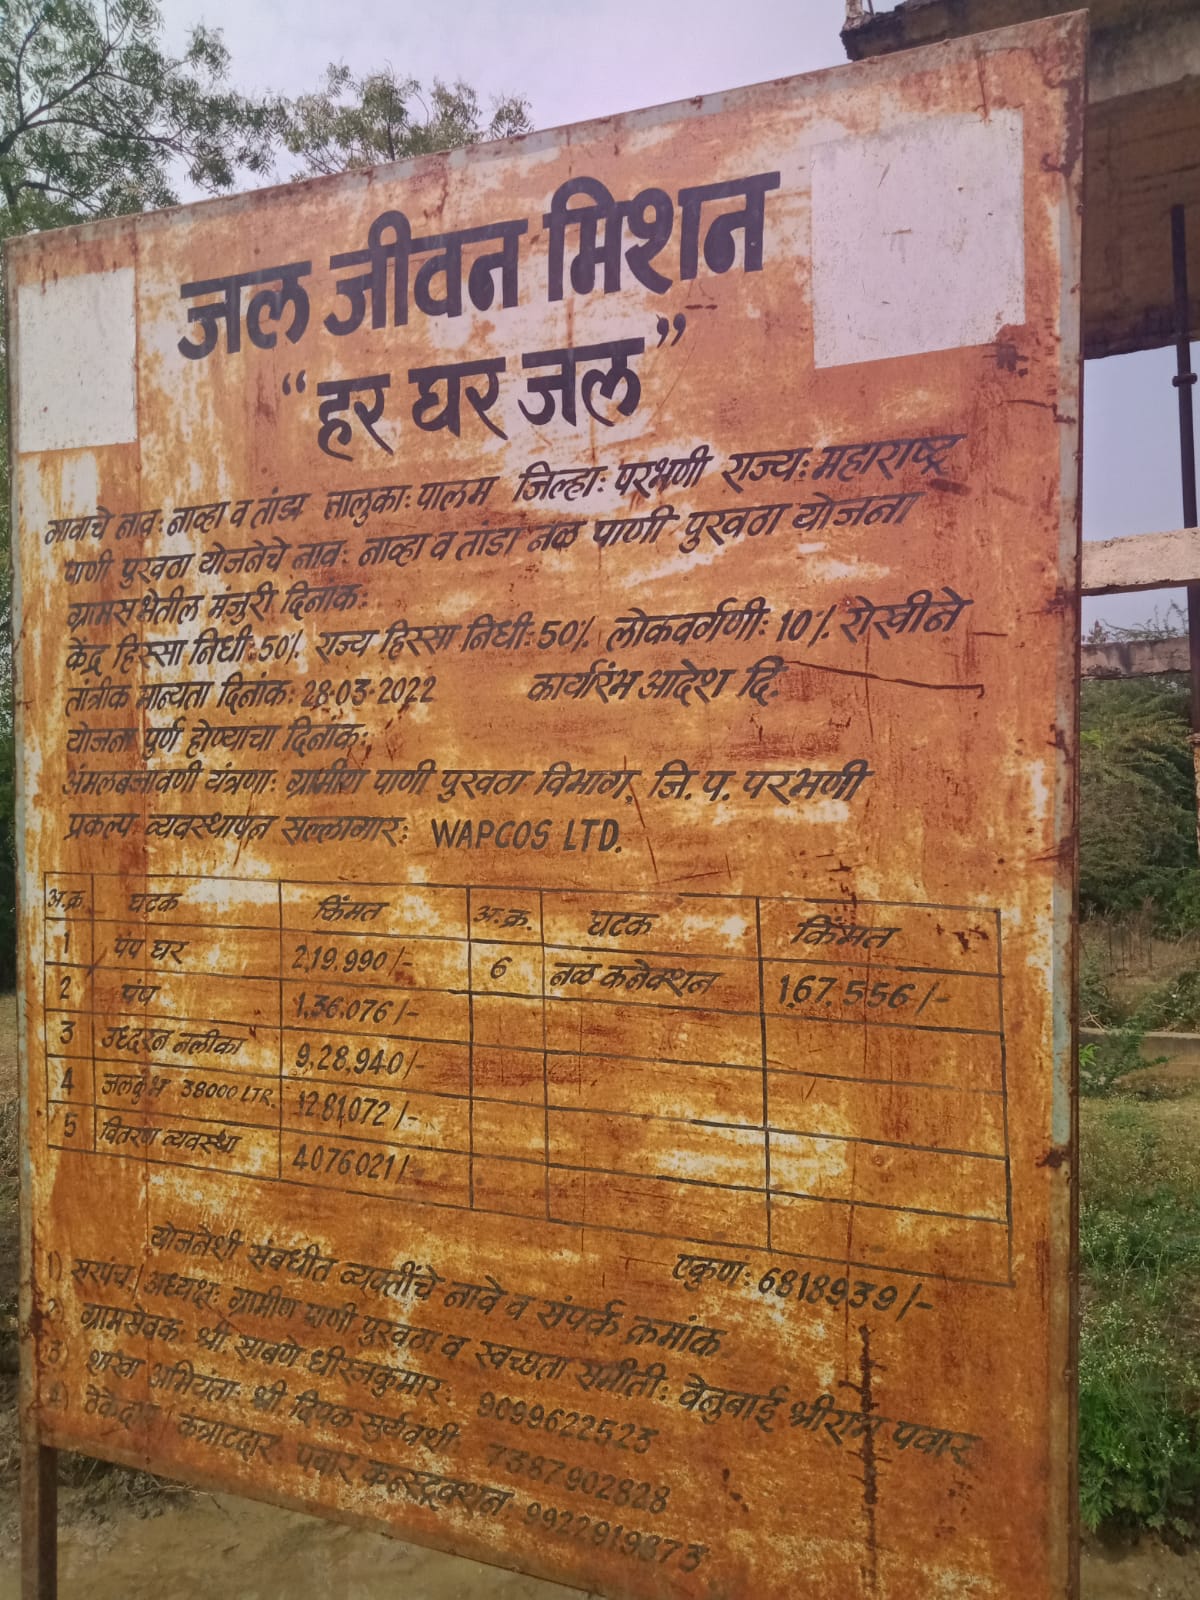 जल जीवन मिशन
“हर घर जल”
गावाचे नाव: नाव्हा व तांडा तालुका: पालम जिल्हा: परभणी राज्य: महाराष्ट्र
पाणी पुरवठा योजनेचे नाव: नाव्हा व तांडा नळ पाणी पुरवठा योजना
ग्रामसभेतील मंजुरी दिनांक:
केंद्र हिस्सा निधी: 50% राज्य हिस्सा निधी: 50% लोकवर्गणी: 10% रोखीने
तांत्रीक मान्यता दिनांक: 28.03.2022 कार्यारंभ आदेश दि.
योजना पुर्ण होण्याचा दिनांक:
अंमलबजावणी यंत्रणा: ग्रामीण पाणी पुरवठा विभाग, जि. प. परभणी
प्रकल्प व्यवस्थापन सल्लागार: WAPCOS LTD.
अ.क्र. घटक किंमत अ.क्र. घटक किंमत
1 पंप घर 2,19,990/- 6 नळ कनेक्शन 1,67,556/-
2 पंप 1,36,076/-
3 उध्दरन नलीका 9,28,940/-
4 जलकुंभ 38000 LTR. 1281,072/-
5 वितरण व्यवस्था 4076021/-
एकुण: 6818939/-
योजनेशी संबधीत व्यक्तींचे नावे व संपर्क क्रमांक
1) सरपंच/अध्यक्ष: ग्रामीण पाणी पुरवठा व स्वच्छता समीती: वेनुबाई श्रीराम पवार
2) ग्रामसेवक: श्री. साबणे धीरजकुमार: 9099622523
3) शाखा अभियंता: श्री दिपक सुर्यवंशी 7387902828
4) ठेकेदार/कंत्राटदार: पवार कन्स्ट्रक्शन, 9922919373